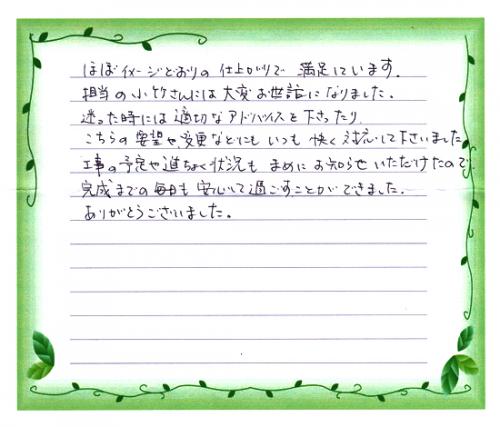 ほぼイメージどおりの仕上がりで 満足しています。
担当の小竹さんには大変お世話になりました。
迷った時には適切なアドバイスを下さったり、
こちらの要望や変更などにもいつも快く対応して下さいました。
工事の予定や進ちょく状況もまめにお知らせいただけたので
完成までの毎日も安心して過ごすことができました。
ありがとうございました。